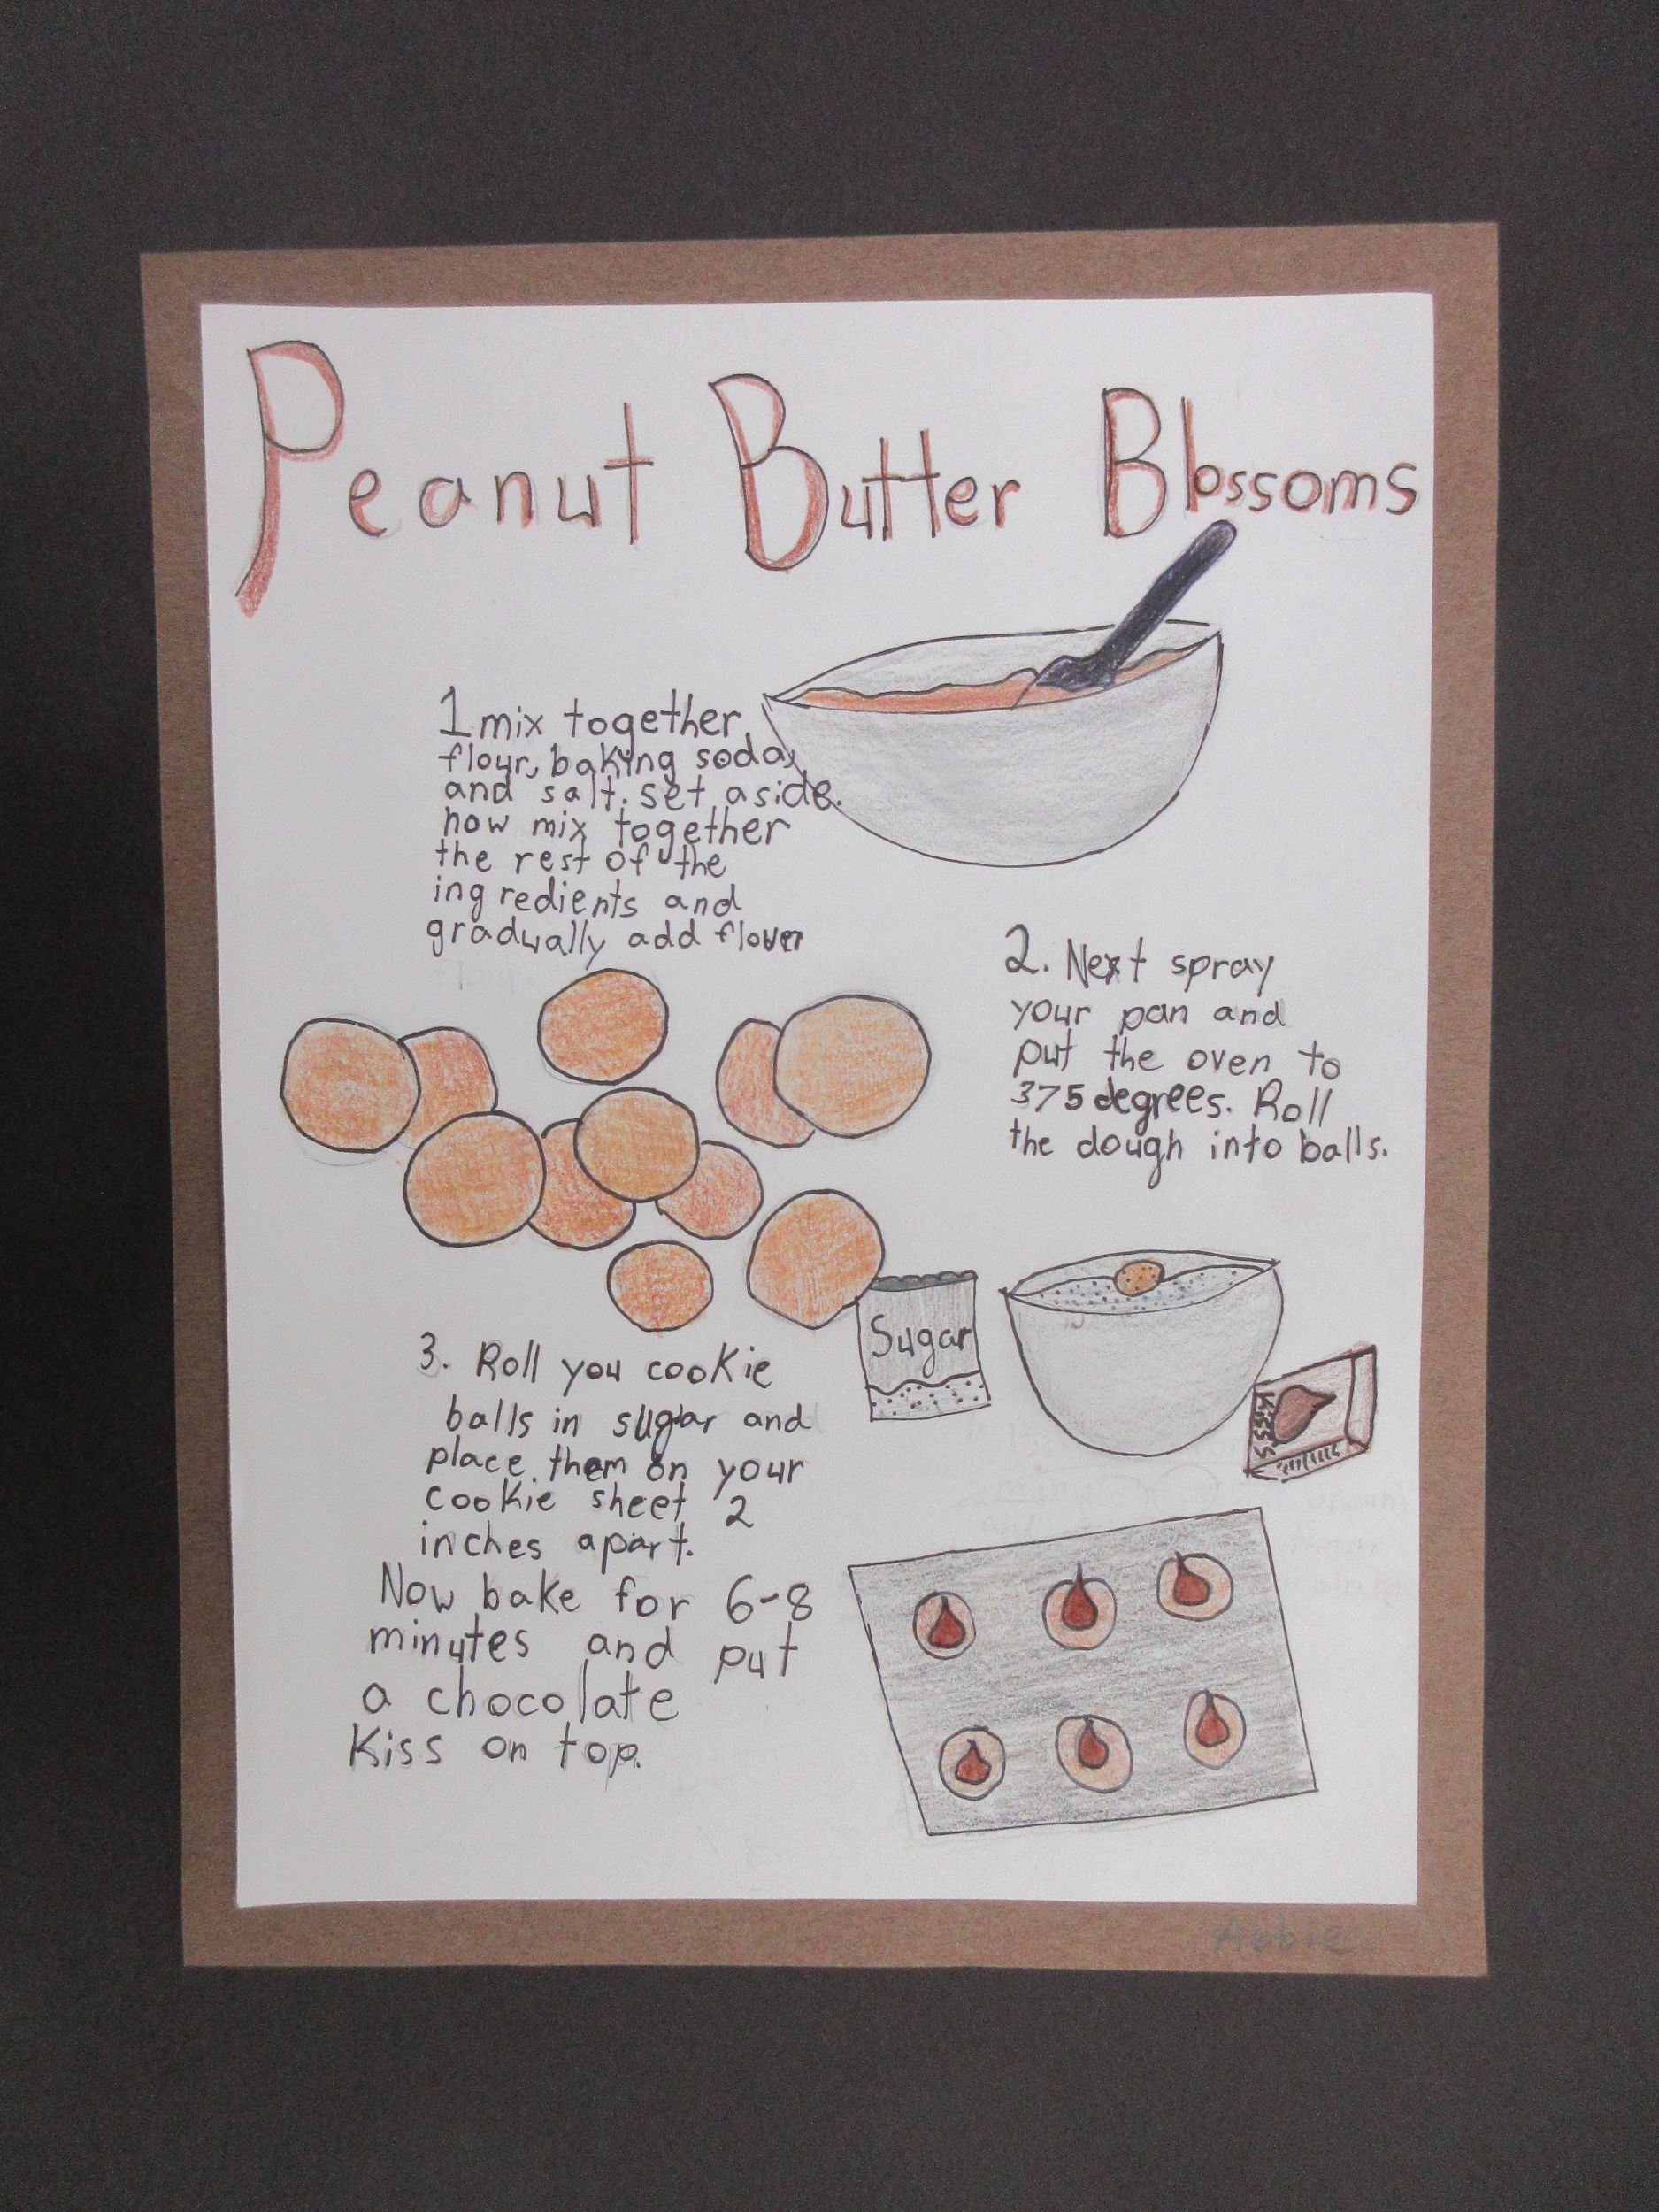 Peanut Butter Blossoms
1 mix together
flour, baking soda,
and salt. set aside.
now mix together
the rest of the
ingredients and
gradually add flower
2. Next spray
your pan and
put the oven to
375 degrees. Roll
the dough into balls.
Sugar
KISSES
3. Roll you cookie
balls in sugar and
place them on your
cookie sheet 2
inches apart.
Now bake for 6-8
minutes and put
a chocolate
Kiss on top.
Abbie